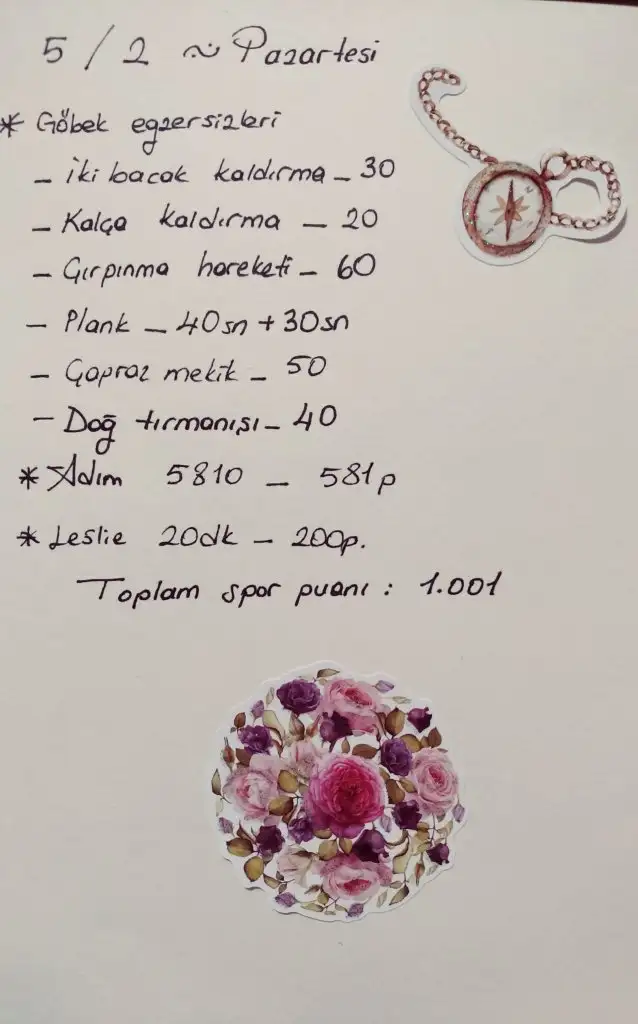 5 / 2 ~ Pazartesi
* Göbek egzersizleri
- iki bacak kaldırma - 30
- Kalça kaldırma - 20
- Çırpınma hareketi - 60
- Plank - 40sn + 30sn
- Çapraz mekik - 50
- Dağ tırmanışı - 40
* Adım 5810 - 581p
* Leslie 20dk - 200p.
Toplam spor puanı : 1.001